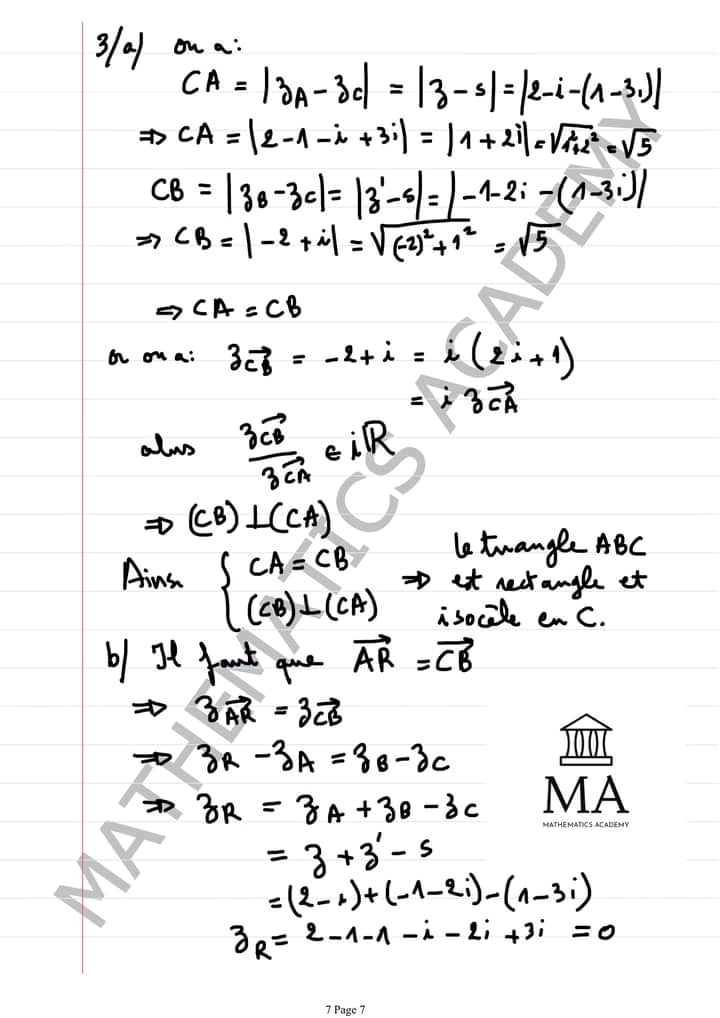 3/a) on a:
CA = |zA - zC| = |z - s| = |2-i-(1-3i)|
⇒ CA = |2-1-i+3i| = |1+2i| = √1²+2² = √5
CB = |zB - zC| = |z' - s| = |-1-2i-(1-3i)|
⇒ CB = |-2+i| = √(-2)²+1² = √5
⇒ CA = CB
or on a: z_CB→ = -2+i = i(2i+1)
= i z_CA→
alors z_CB→ / z_CA→ ∈ iℝ
⇒ (CB)⊥(CA)
Ainsi { CA = CB
(CB)⊥(CA) ⇒ le triangle ABC
est rectangle et
isocèle en C.
b) Il faut que AR→ = CB→
⇒ z_AR→ = z_CB→
⇒ zR - zA = zB - zC
⇒ zR = zA + zB - zC
= z + z' - s
= (2-i)+(-1-2i)-(1-3i)
zR = 2-1-1-i-2i+3i = 0
MA
MATHEMATICS ACADEMY
MATHEMATICS ACADEMY
7 Page 7